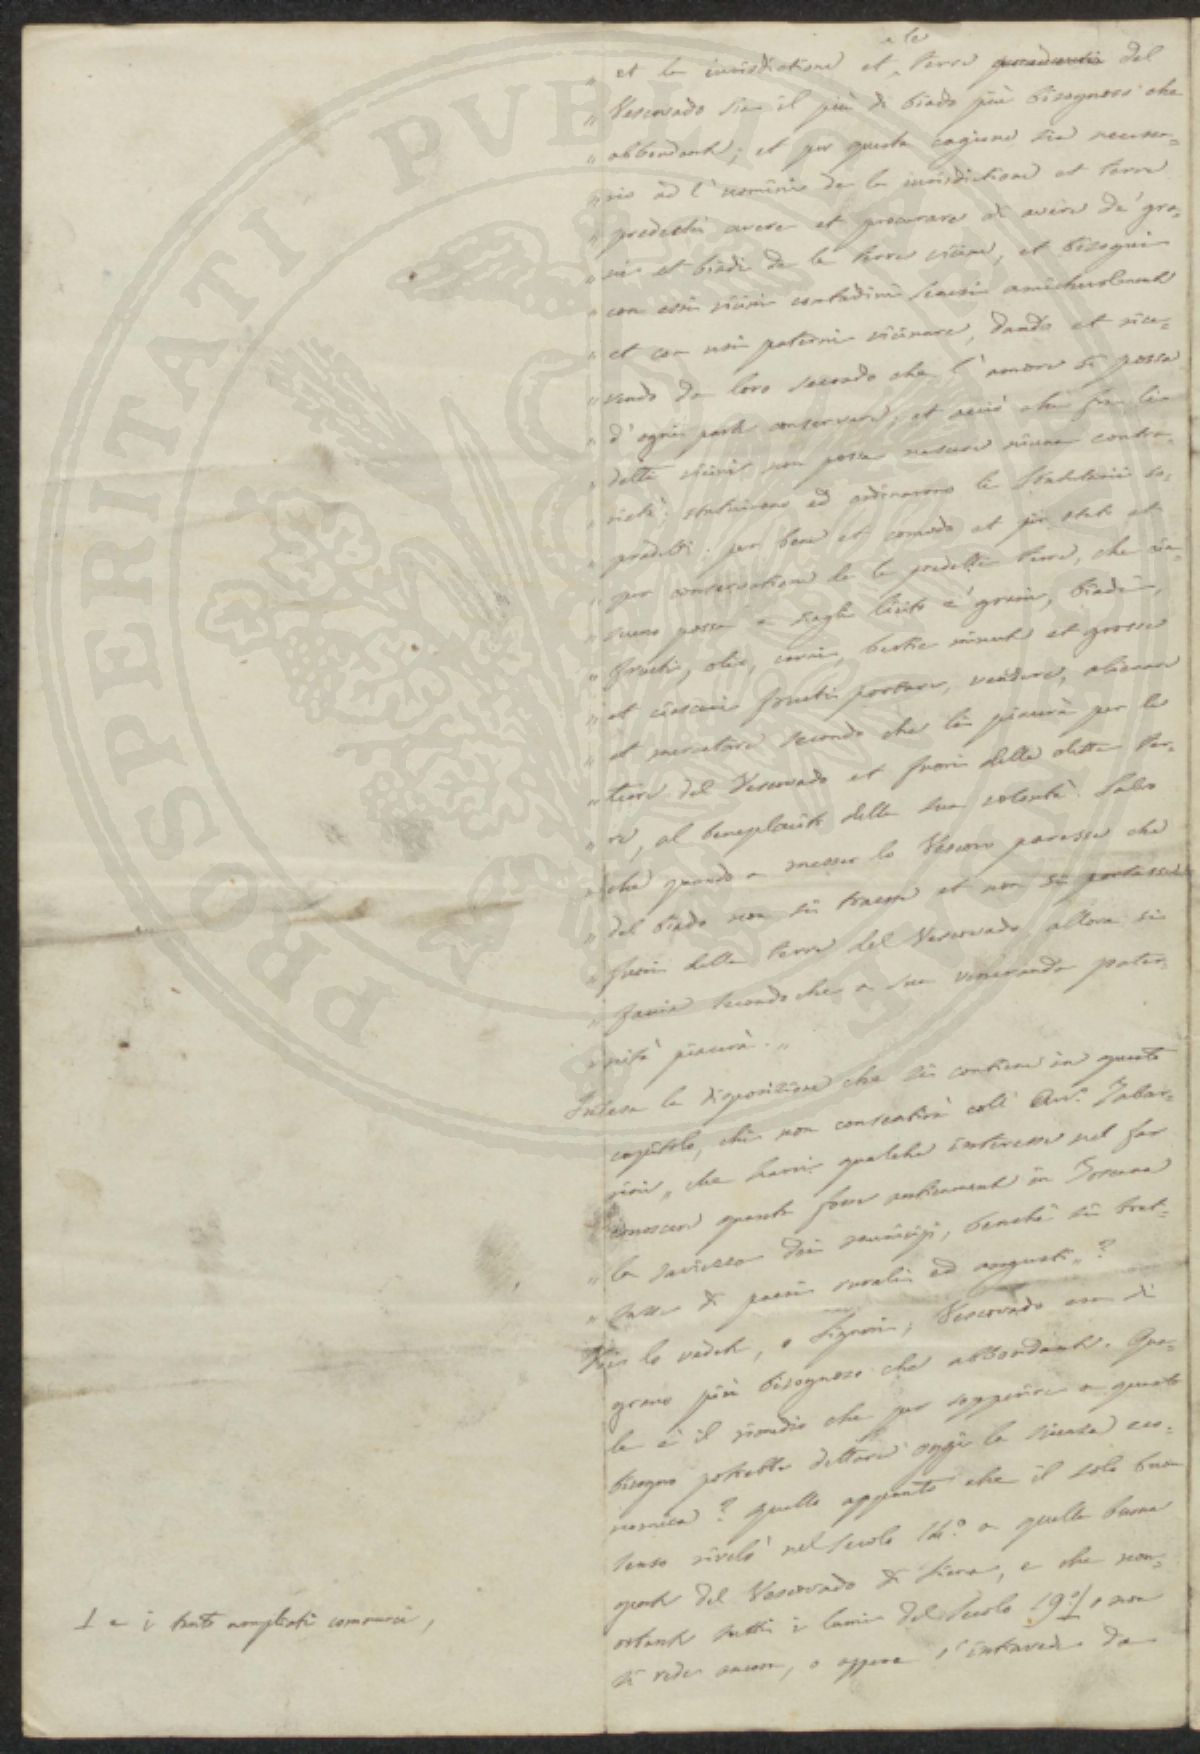 e le
„ et la iurisdictione et, terre del
„ Vescovado sia il più di biado più bisognoso che
„ abbondante; et per questa cagione sia necessa-
„ rio ad l'uomini de la iurisdictione et terre
„ predette avere et procurare di avere de' gra-
„ ni et biadi da le terre vicine, et bisogni
„ con essi vicini contadini Senesi amichevolmente
„ et con usi paterni vicinare, dando et rice-
„ vendo da loro secondo che l'amore si possa
„ d'ogni parte conservare; et acciò che fra li
„ detti vicini non possa nascere niuna contra-
„ rietà; statuirono ed ordinarono li Statutarii so-
„ pradetti: per bene et comodo et per stato et
„ per conservatione de le predette terre, che cia-
„ scuno possa e siagli licito e' grani, biadi,
„ fructi, olio, carni, bestie minute et grosse
„ et ciascuni fructi portare, vendere, alienare
„ et mercatare secondo che li piacerà per le
„ terre del Vescovado et fuori delle dette ter-
„ re, al beneplacito della sua volontà. Salvo
„ che quando a messer lo Vescovo paresse che
„ del biado non si traesse et non si portasse
„ fuori delle terre del Vescovado, allora si
„ faccia secondo che a sua veneranda pater-
„ nità piacerà. „
Intesa la disposizione che si contiene in questo
capitolo, chi non consentirà coll' Avv.
„ che siavi qualche interesse nel far
conoscere quanta fosse anticamente in Toscana
„ la saviezza dei municipj, benchè si trat-
„ tasse di paesi rurali ed angusti „?
Voi lo vedete, o Signori; Vescovado era di
grano più bisognoso che abbondante. Qua-
le è il rimedio che per sopperire a questo
bisogno potrebbe dettare oggi la scienza eco-
nomica? Quello appunto che il solo buon
senso rivelò nel secolo 14.º a quella buona
gente del Vescovado di Siena, e che non-
ostante tutti i lumi del Secolo 19º/⊥, o non
si vede ancora, o appena s'intravede da
⊥ e i tanto commerci,